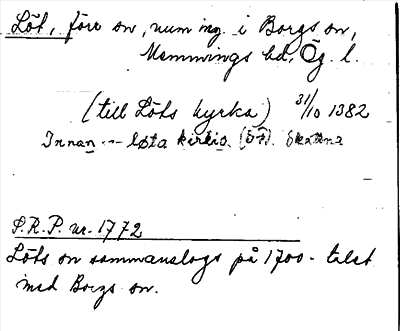 Löt, förr sn, num ing. i Borgs sn,
Memmings hd, Ög. l.
(till Löts kyrka) 31/10 1382
Innan --- løta kirkio. (ÖF).
S.R.P. nr. 1772
Löts sn sammanslogs på 1700-talet
med Borgs sn.